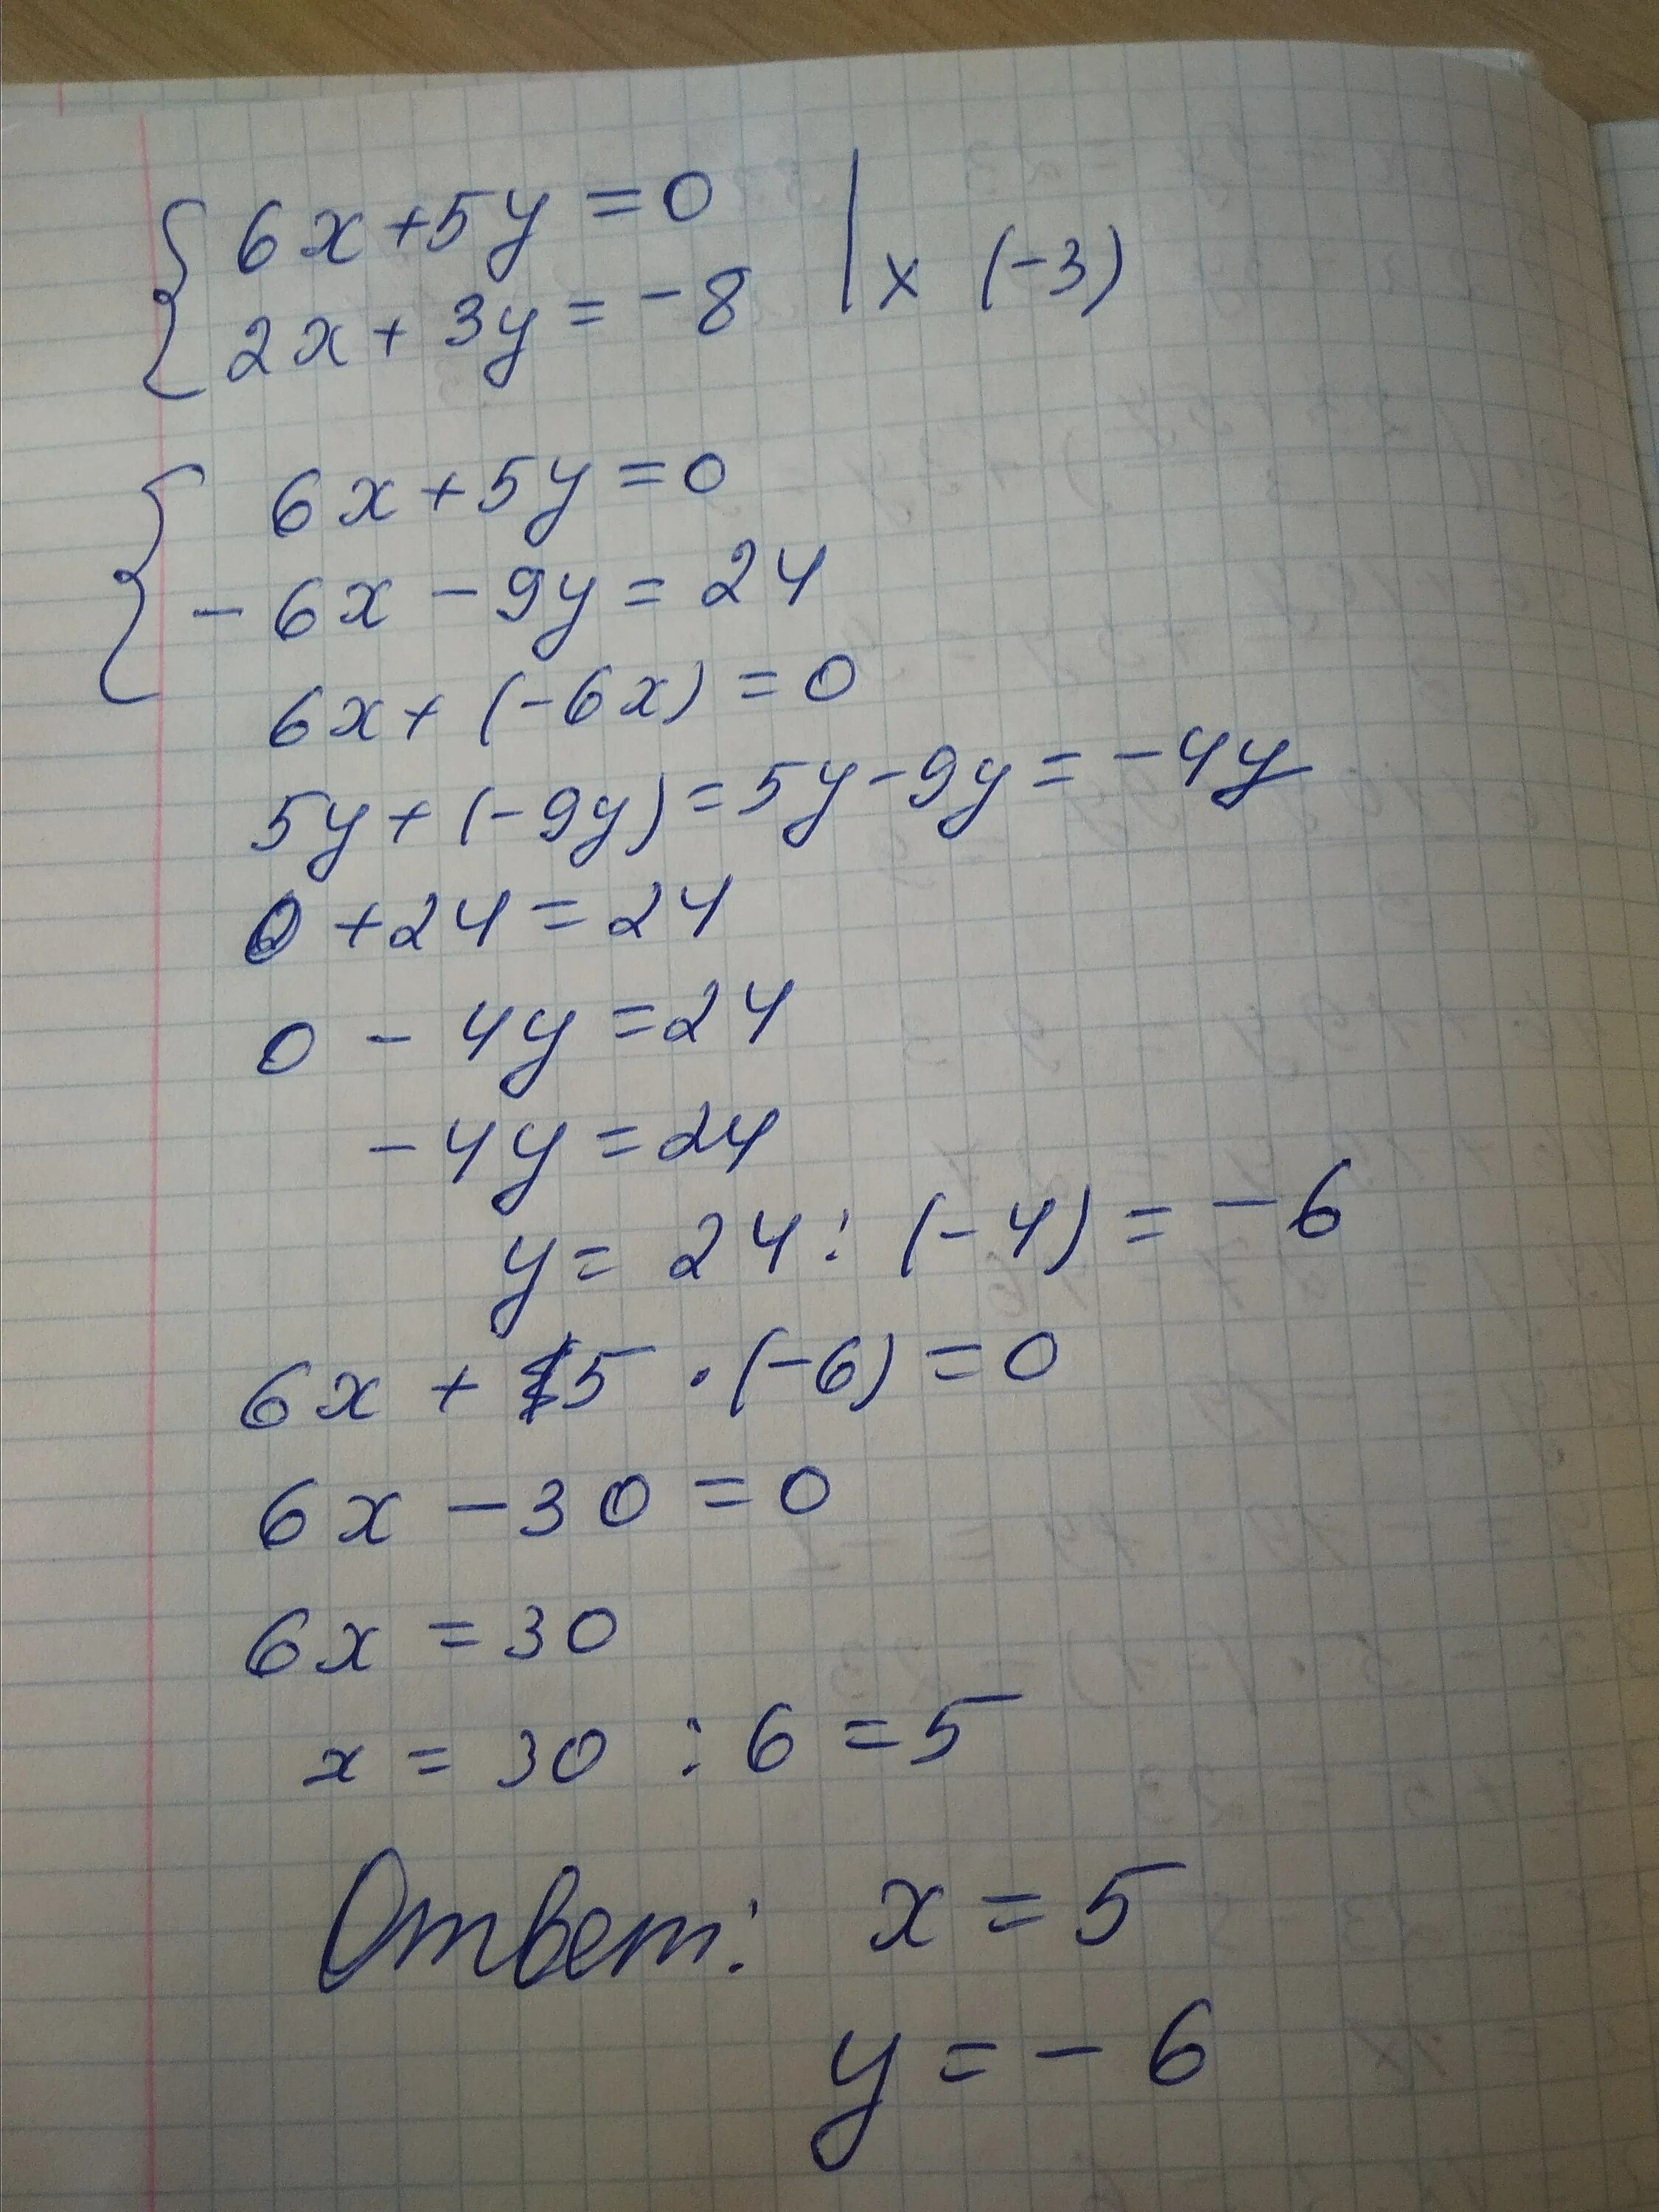 6x+5y=0 | x (-3)
2x+3y=-8
6x+5y=0
-6x-9y=24
6x+(-6x)=0
5y+(-9y)=5y-9y=-4y
0+24=24
0-4y=24
-4y=24
y=24:(-4)=-6
6x+5·(-6)=0
6x-30=0
6x=30
x=30:6=5
Ответ: x=5
y=-6